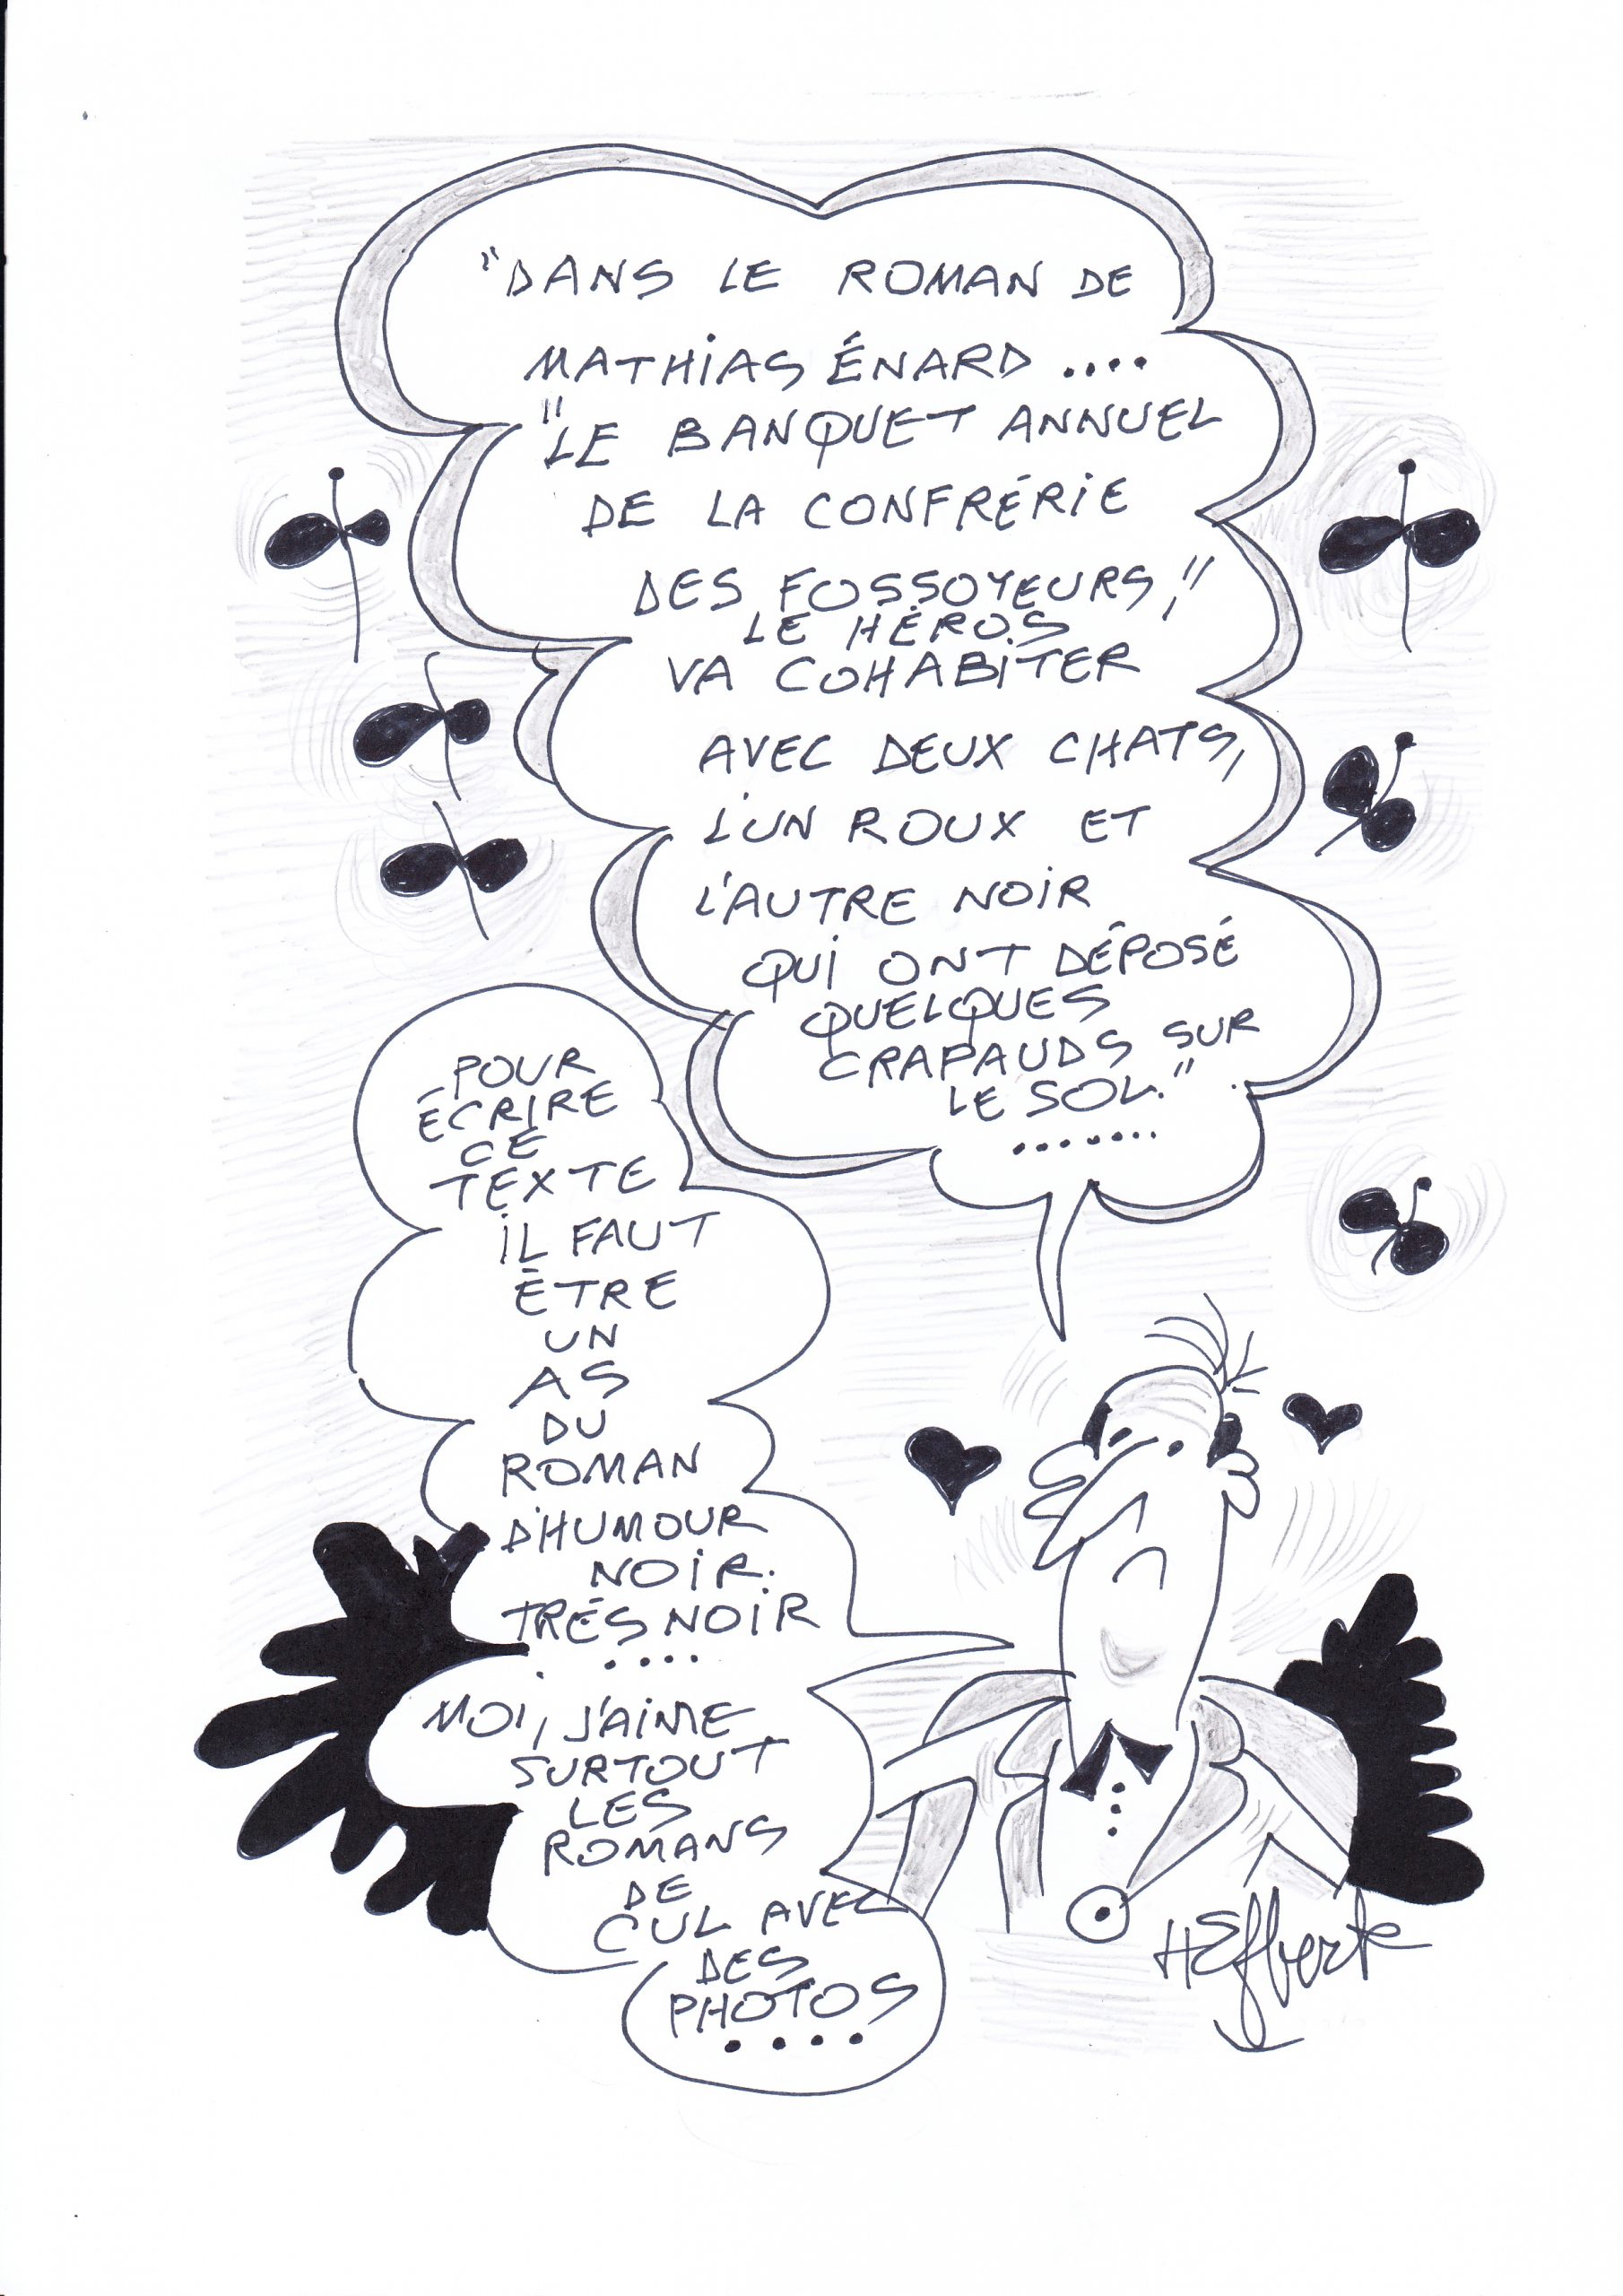 "DANS LE ROMAN DE
MATHiAS ÉNARD ....
"LE BANQUET ANNUEL
DE LA CONFRÉRiE
DES FOSSOYEURS,"
LE HÉROS
VA COHABiTER
AVEC DEUX CHATS,
L'UN ROUX ET
L'AUTRE NOiR
QUi ONT DÉPOSÉ
QUELQUES
CRAPAUDS SUR
LE SOL."
.......
POUR
ÉCRIRE
CE
TEXTE
iL FAUT
ÊTRE
UN
AS
DU
ROMAN
D'HUMOUR
NOiR.
TRÉS NOiR
....
MOi, J'AiME
SURTOUT
LES
ROMANS
DE
CUL AVEC
DES
PHOTOS
....